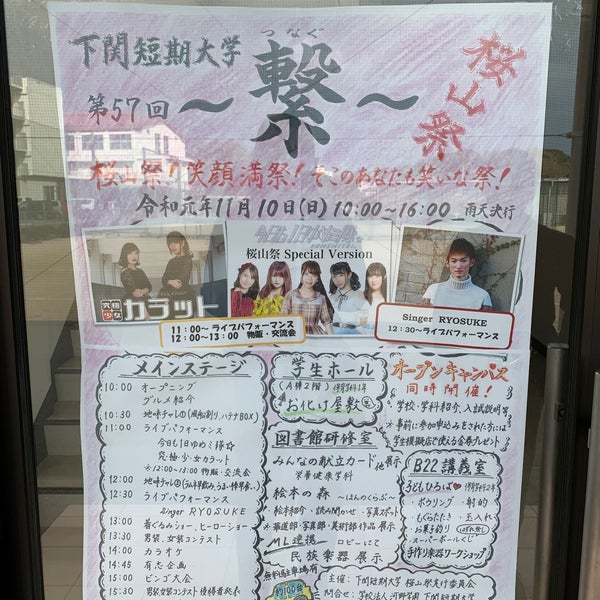 下関短期大学
つなぐ
第57回
～繋～
桜山祭
桜山祭！笑顔満祭！そこのあなたも笑いな祭！
令和元年11月10日(日) 10:00～16:00 雨天決行
桜山祭 Special Version
究極少女
カラット
11:00～ ライブパフォーマンス
12:00～13:00 物販・交流会
Singer RYOSUKE
12:30～ライブパフォーマンス
メインステージ
10:00 オープニング
グルメ紹介
10:30 地味チャレ①(風船割り、ハテナBOX)
11:00 ライブパフォーマンス
今日も1日ゆめミ隊☆
究極少女カラット
※12:00～13:00 物販・交流会
12:30 ライブパフォーマンス
Singer RYOSUKE
13:00 着ぐるみショー、ヒーローショー
13:30 男装、女装コンテスト
14:00 カラオケ
14:45 有志企画
15:00 ビンゴ大会
15:30 男装女装コンテスト優勝者発表
学生ホール
(A棟2階) 保育学科1年
お化け屋敷
図書館研修室
みんなの献立カード 他展示
栄養健康学科
絵本の森 ～ほんのくらぶ～
・絵本紹介・読み聞かせ・写真スポット
※華道部・写真部・美術部 作品展示
ML連携 ロビーにて
民族楽器 展示
無料駐車場有
約100台
オープンキャンパス
同時開催！
※学校・学科紹介、入試説明等
※事前に参加申込みをされた方には
学生模擬店で使える金券プレゼント
B22講義室
子どもひろば 保育学科2年
・ボウリング ・射的
・もぐらたたき ・玉入れ
・お菓子釣り
・スーパーボールくじ
手作り楽器ワークショップ
主催：下関短期大学 桜山祭実行委員会
問合せ：学校法人 河野学園 下関短期大学